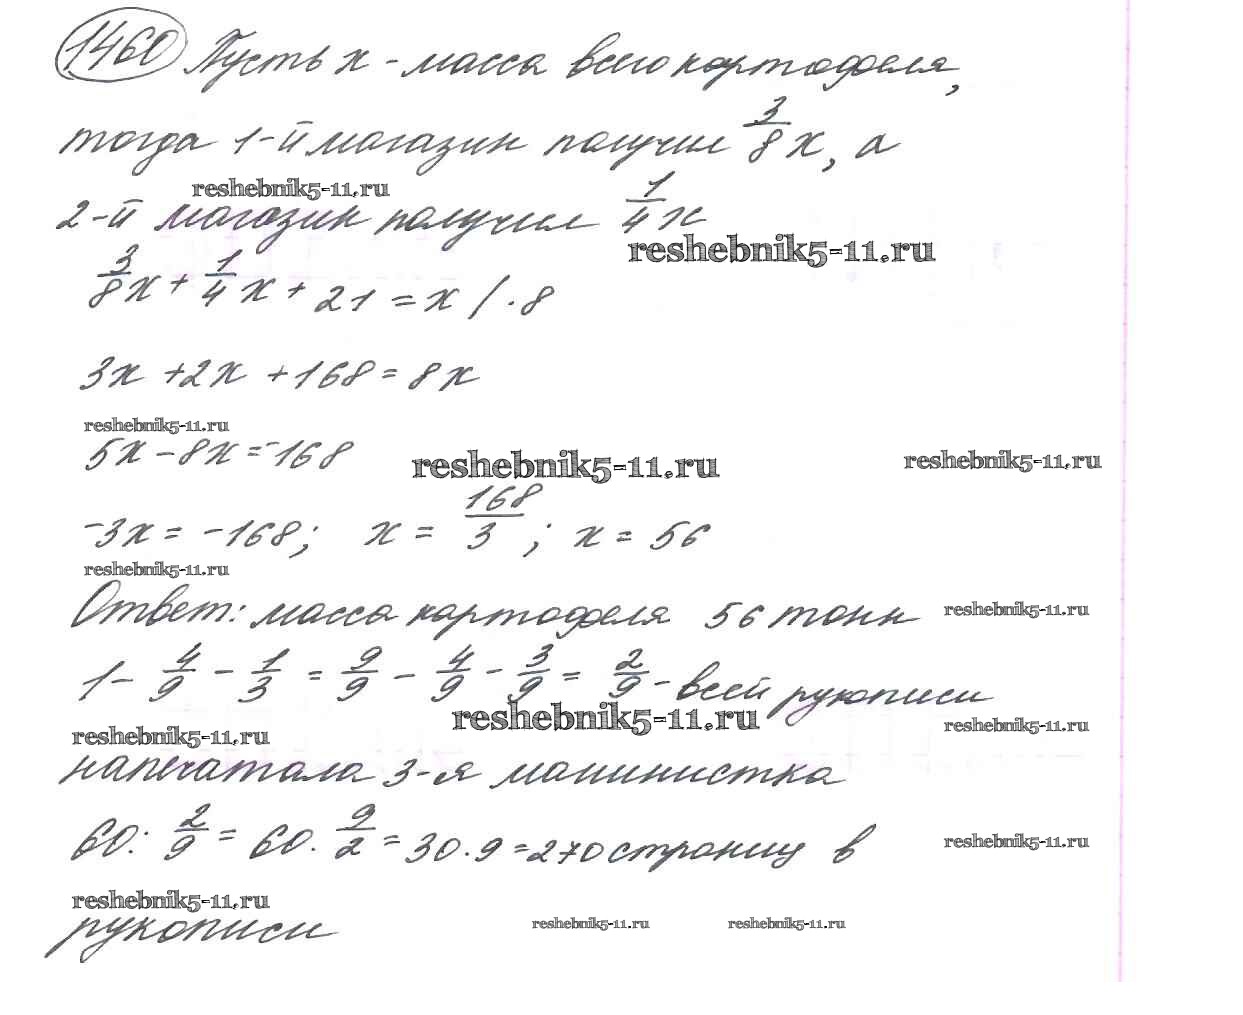 1460 Пусть x - масса всего картофеля,
тогда 1-й магазин получил 3/8 x, а
reshebnik5-11.ru
2-й магазин получил 1/4 x
reshebnik5-11.ru
3/8 x + 1/4 x + 21 = x / · 8
3x + 2x + 168 = 8x
reshebnik5-11.ru
5x - 8x = -168
reshebnik5-11.ru
reshebnik5-11.ru
-3x = -168; x = 168/3; x = 56
reshebnik5-11.ru
Ответ: масса картофеля 56 тонн
reshebnik5-11.ru
1 - 4/9 - 1/3 = 9/9 - 4/9 - 3/9 = 2/9 - всей рукописи
reshebnik5-11.ru
reshebnik5-11.ru
reshebnik5-11.ru
напечатала 3-я машинистка
60 : 2/9 = 60 · 9/2 = 30 · 9 = 270 страниц в
reshebnik5-11.ru
reshebnik5-11.ru
рукописи
reshebnik5-11.ru
reshebnik5-11.ru